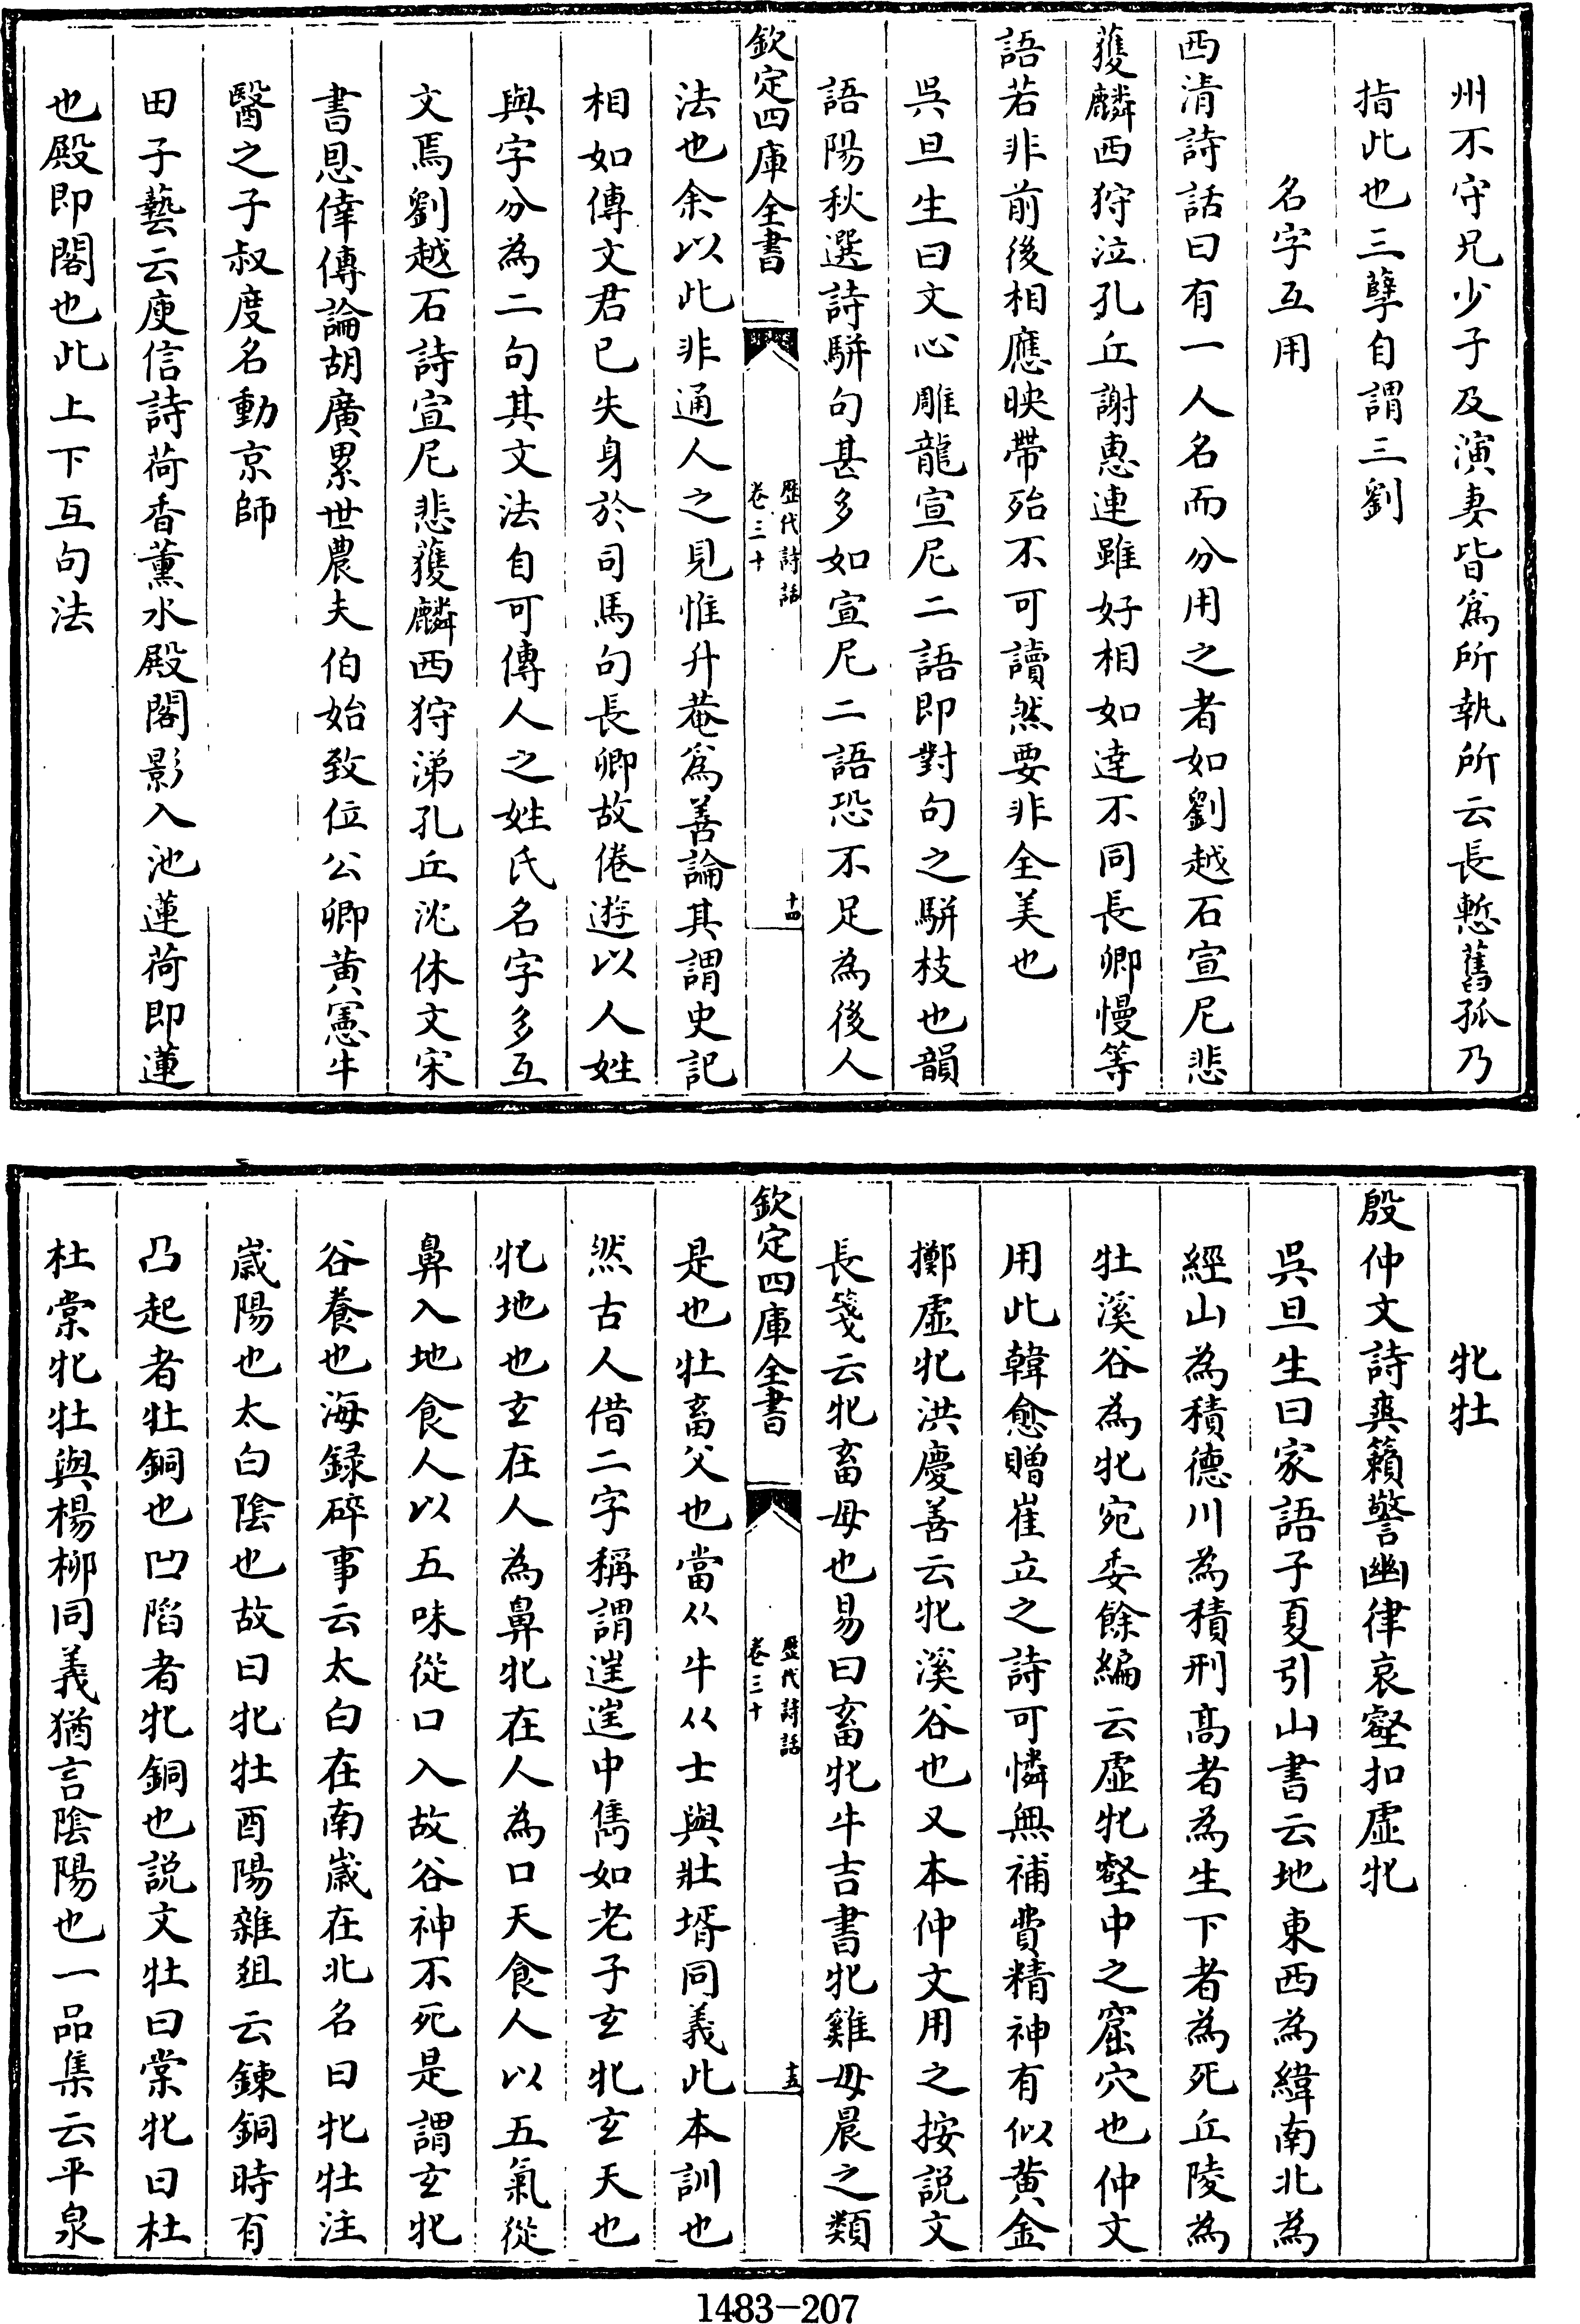 州不守兄少子及演妻皆為所執所云長慙舊孤乃
指此也三孽自謂三劉
名字互用
西清詩話曰有一人名而分用之者如劉越石宣尼悲
獲麟西狩泣孔丘謝惠連雖好相如達不同長卿慢等
語若非前後相應映帶殆不可讀然要非全美也
吳旦生曰文心雕龍宣尼二語即對句之駢枝也韻
語陽秋選詩駢句甚多如宣尼二語恐不足為後人
欽定四庫全書
歷代詩話
卷三十
十四
法也余以此非通人之見惟升菴為善論其謂史記
相如傳文君已失身於司馬句長卿故倦遊以人姓
與字分為二句其文法自可傳人之姓氏名字多互
文焉劉越石詩宣尼悲獲麟西狩涕孔丘沈休文宋
書恩倖傳論胡廣累世農夫伯始致位公卿黃憲牛
醫之子叔度名動京師
田子藝云庾信詩荷香薰水殿閣影入池蓮荷即蓮
也殿即閣也此上下互句法
牝牡
殷仲文詩爽籟警幽律哀壑扣虛牝
吳旦生曰家語子夏引山書云地東西為緯南北為
經山為積德川為積刑高者為生下者為死丘陵為
牡溪谷為牝宛委餘編云虛牝壑中之窟穴也仲文
用此韓愈贈崔立之詩可憐無補費精神有似黃金
擲虛牝洪慶善云牝溪谷也又本仲文用之按說文
長箋云牝畜母也易曰畜牝牛吉書牝雞毋晨之類
欽定四庫全書
歷代詩話
卷三十
十五
是也牡畜父也當从牛从士與壯壻同義此本訓也
然古人借二字稱謂逞逞中雋如老子玄牝玄天也
牝地也玄在人為鼻牝在人為口天食人以五氣從
鼻入地食人以五味從口入故谷神不死是謂玄牝
谷養也海錄碎事云太白在南歲在北名曰牝牡注
歲陽也太白陰也故曰牝牡酉陽雜俎云鍊銅時有
凸起者牡銅也凹陷者牝銅也說文牡曰棠牝曰杜
杜棠牝牡與楊柳同義猶言陰陽也一品集云平泉
1483-207